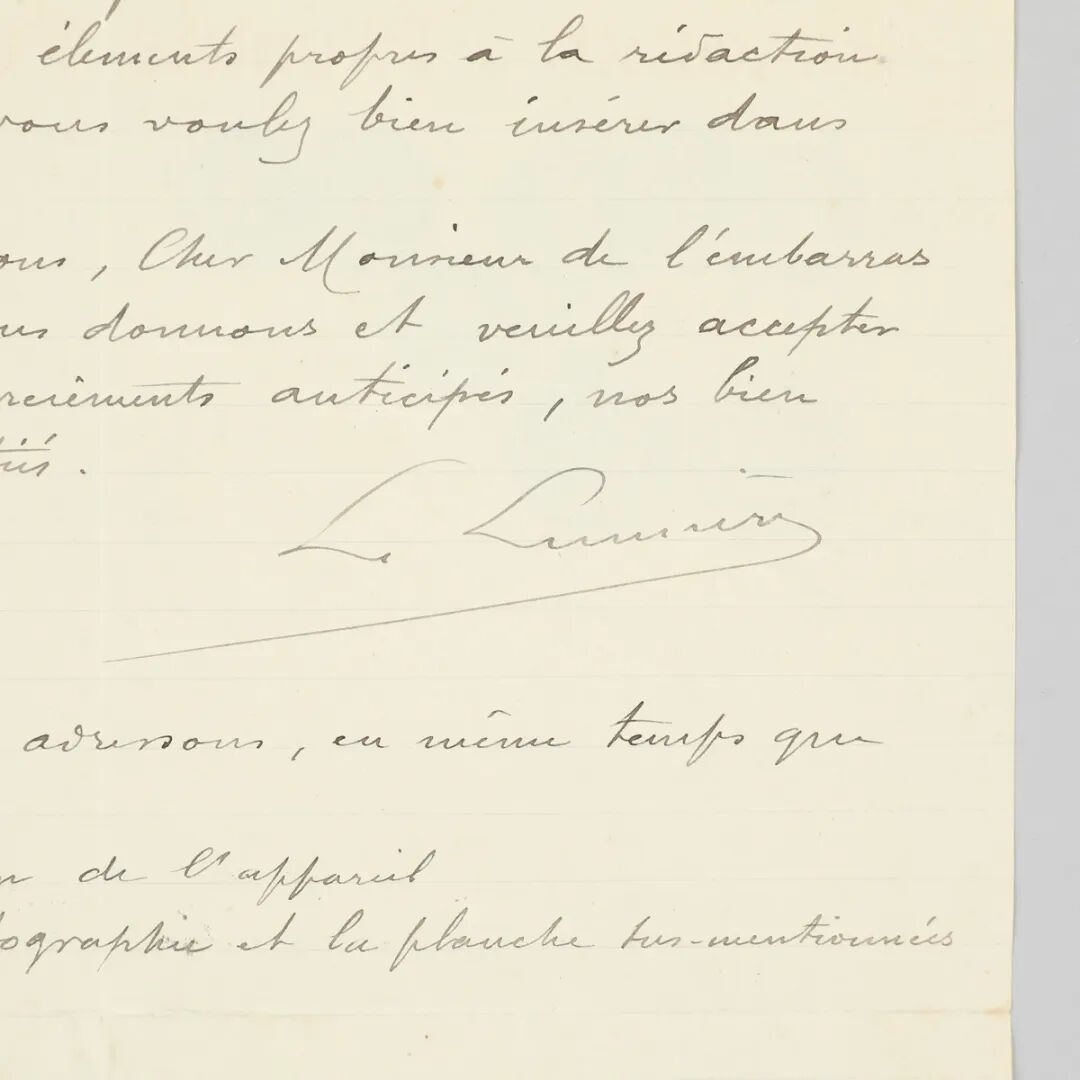 élements propres à la rédaction
vous voulez bien insérer dans
ous, Cher Monsieur de l'embarras
us donnons et veuillez accepter
rciements anticipés, nos bien
L. Lumière
adressons, en même temps que
de l'appareil
tographie et la planche sus-mentionnées